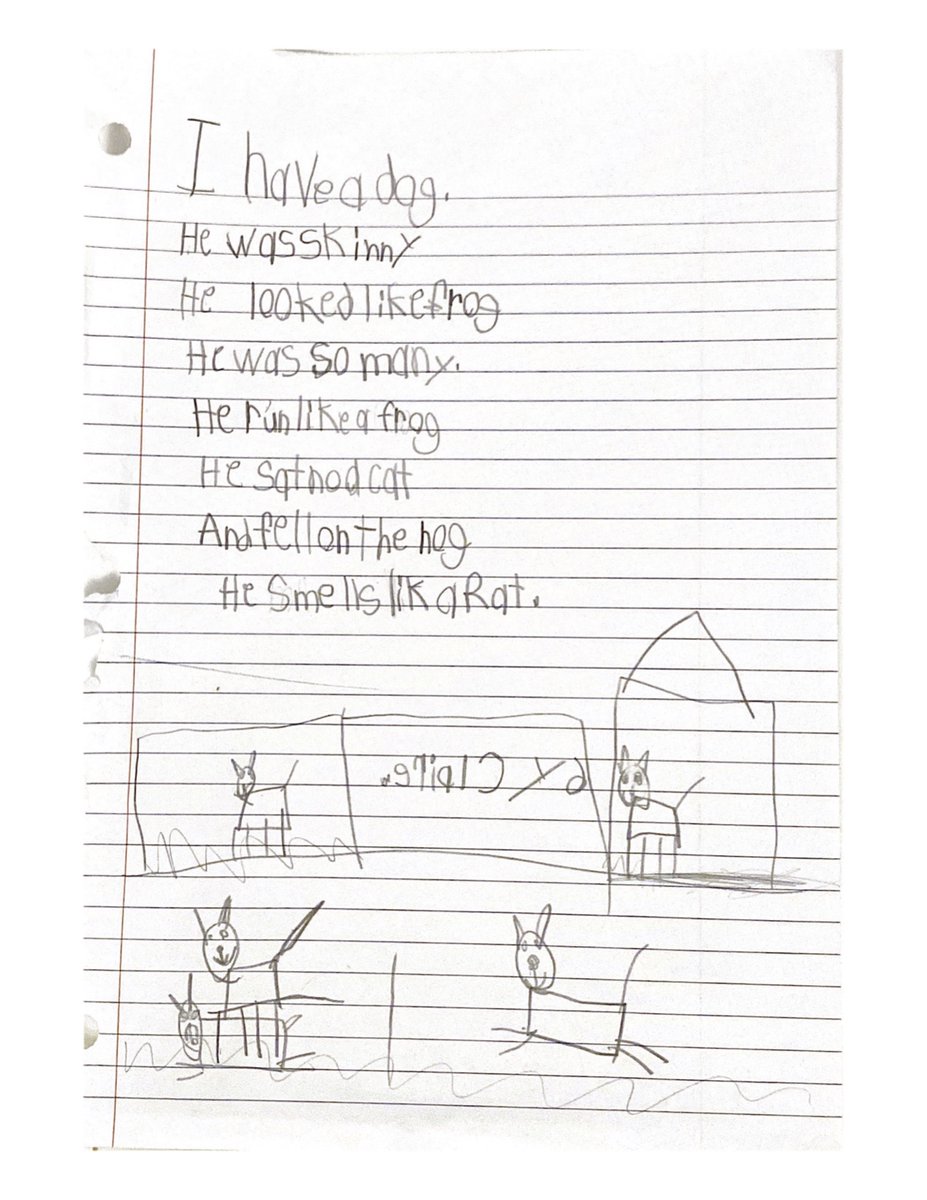 I have a dog.
He was skinny
He looked like frog
He was so many.
He run like a frog
He sat nod cat
And fell on the hog
He smells lik a Rat.
by Claire.